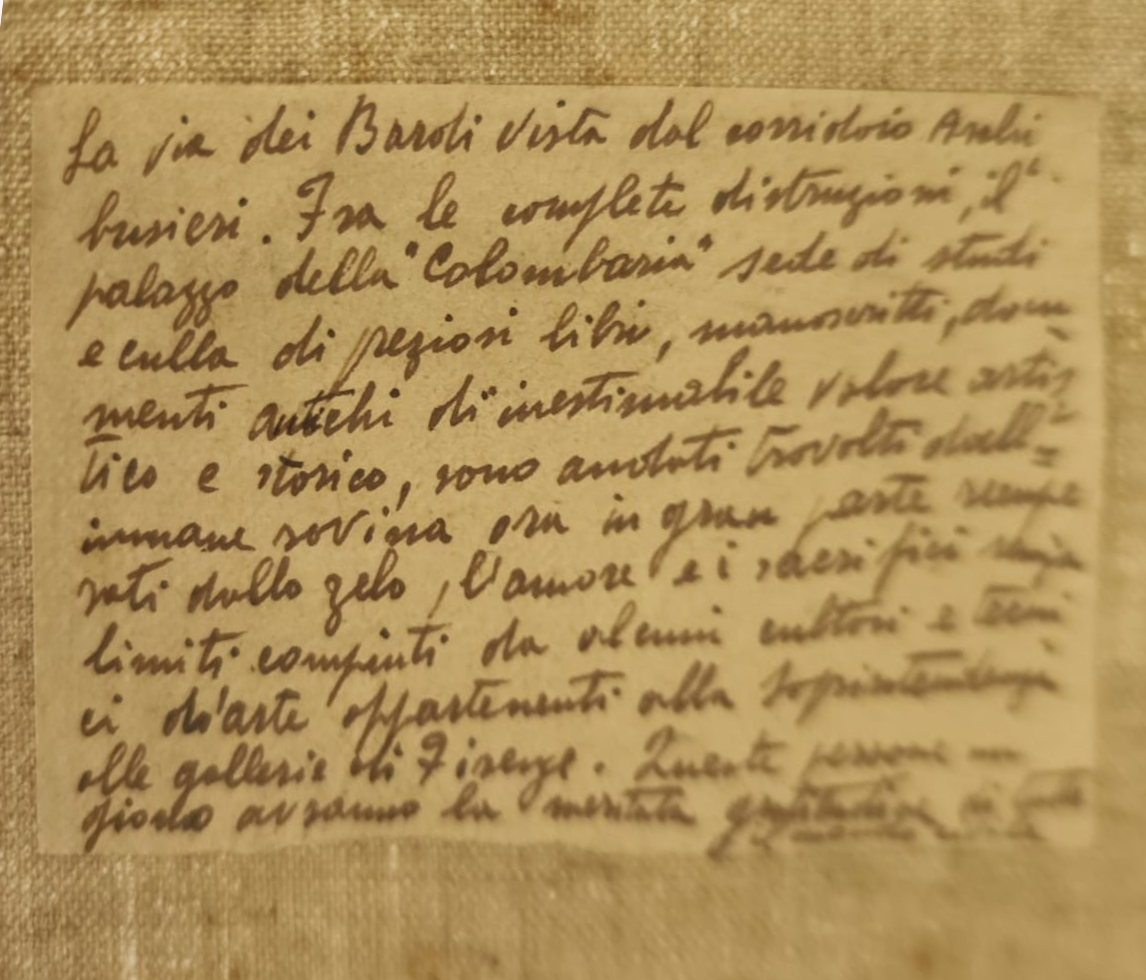 La via dei Bardi vista dal corridoio Archi
busieri. Fra le complete distruzioni, il
palazzo della "Colombaria" sede di studi
e culla di preziosi libri, manoscritti, docu=
menti antichi di inestimabile valore artis=
tico e storico, sono andati travolti dall'=
immane rovina ora in gran parte recupe
rati dallo zelo, l'amore e i sacrifici senza
limiti compiuti da alcuni cultori e tecni
ci d'arte appartenenti alla Soprintendenza
alle gallerie di Firenze. Queste persone un
giorno avranno la meritata gratitudine di